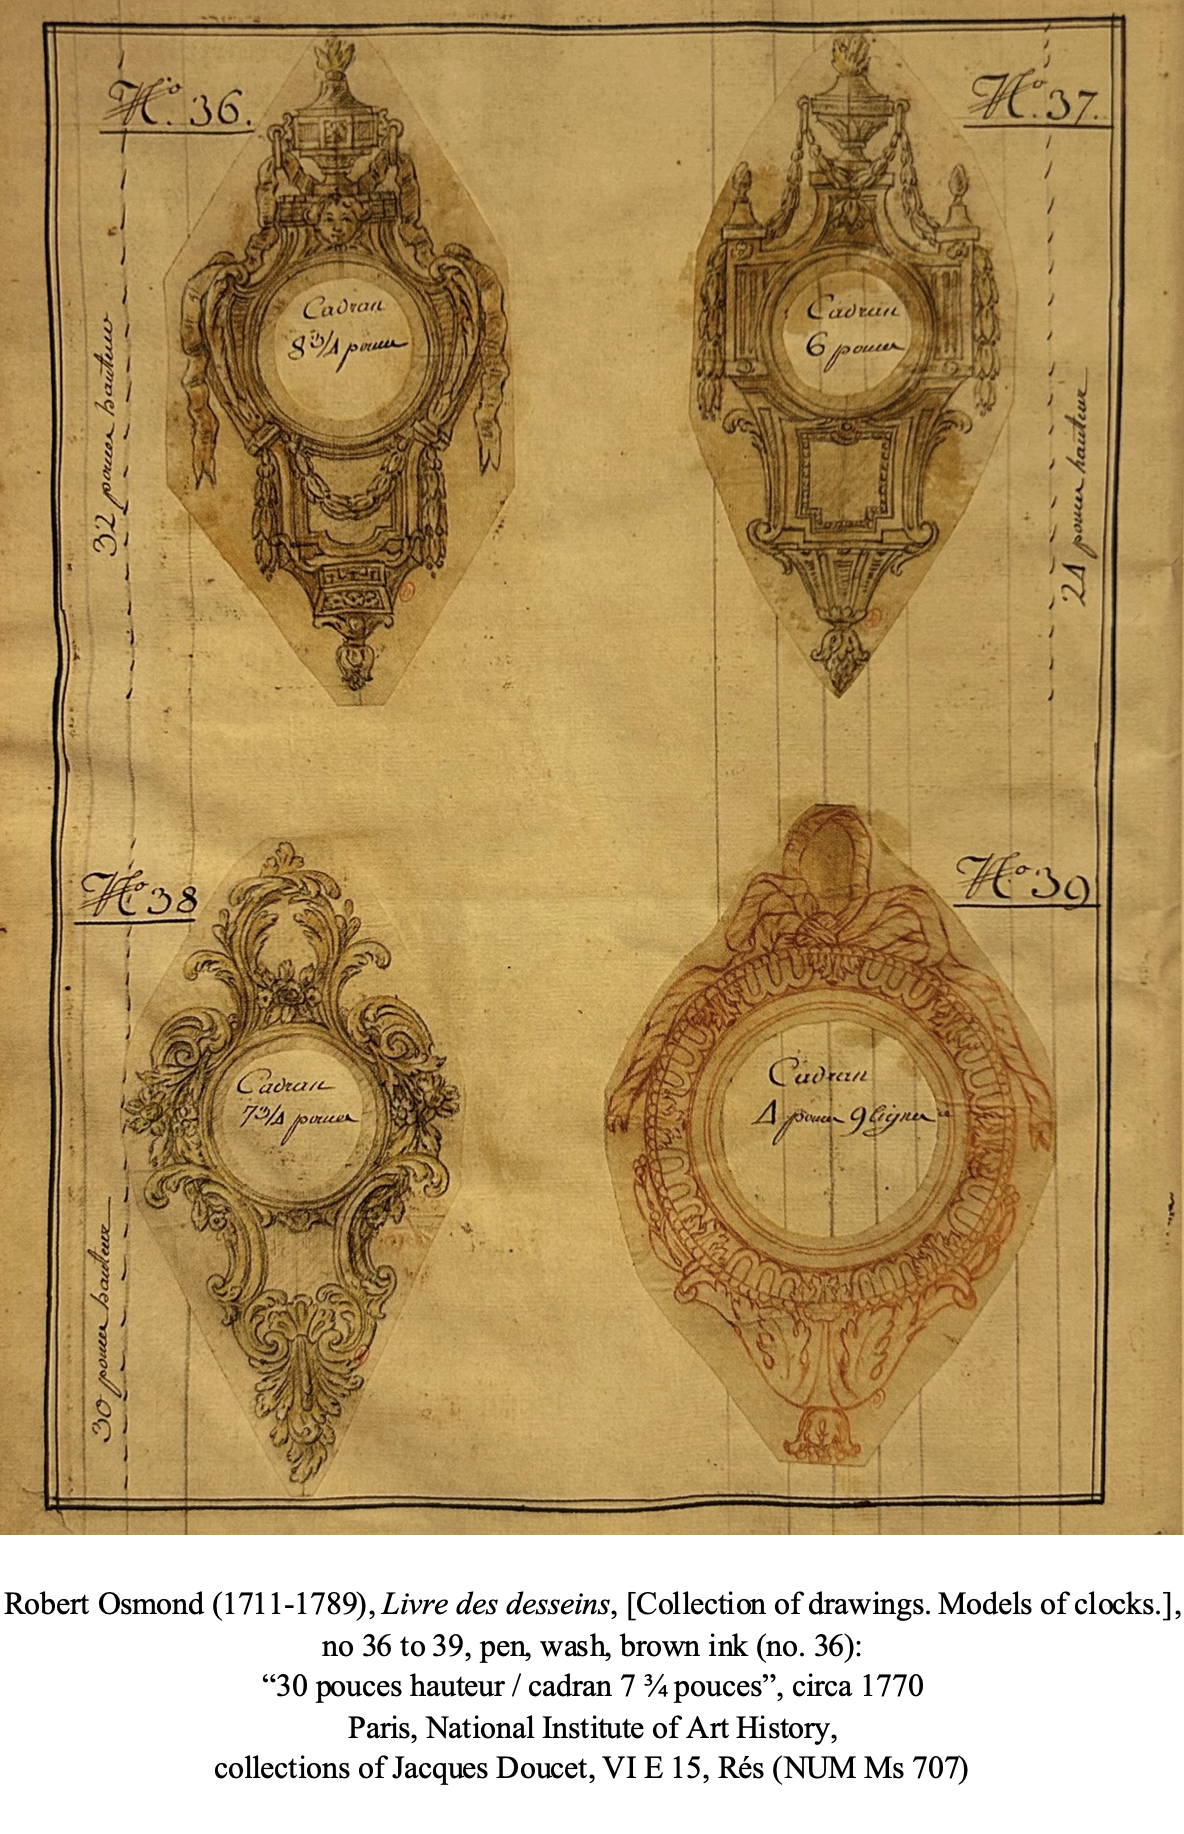 No. 36.
No. 37.
Cadran
8 3/4 pouces
Cadran
6 pouces
32 pouces hauteur
24 pouces hauteur
No 38
No 39
Cadran
7 3/4 pouces
Cadran
4 pouces 9 lignes
30 pouces hauteur
Robert Osmond (1711-1789), Livre des desseins, [Collection of drawings. Models of clocks.],
no 36 to 39, pen, wash, brown ink (no. 36):
“30 pouces hauteur / cadran 7 ¾ pouces”, circa 1770
Paris, National Institute of Art History,
collections of Jacques Doucet, VI E 15, Rés (NUM Ms 707)